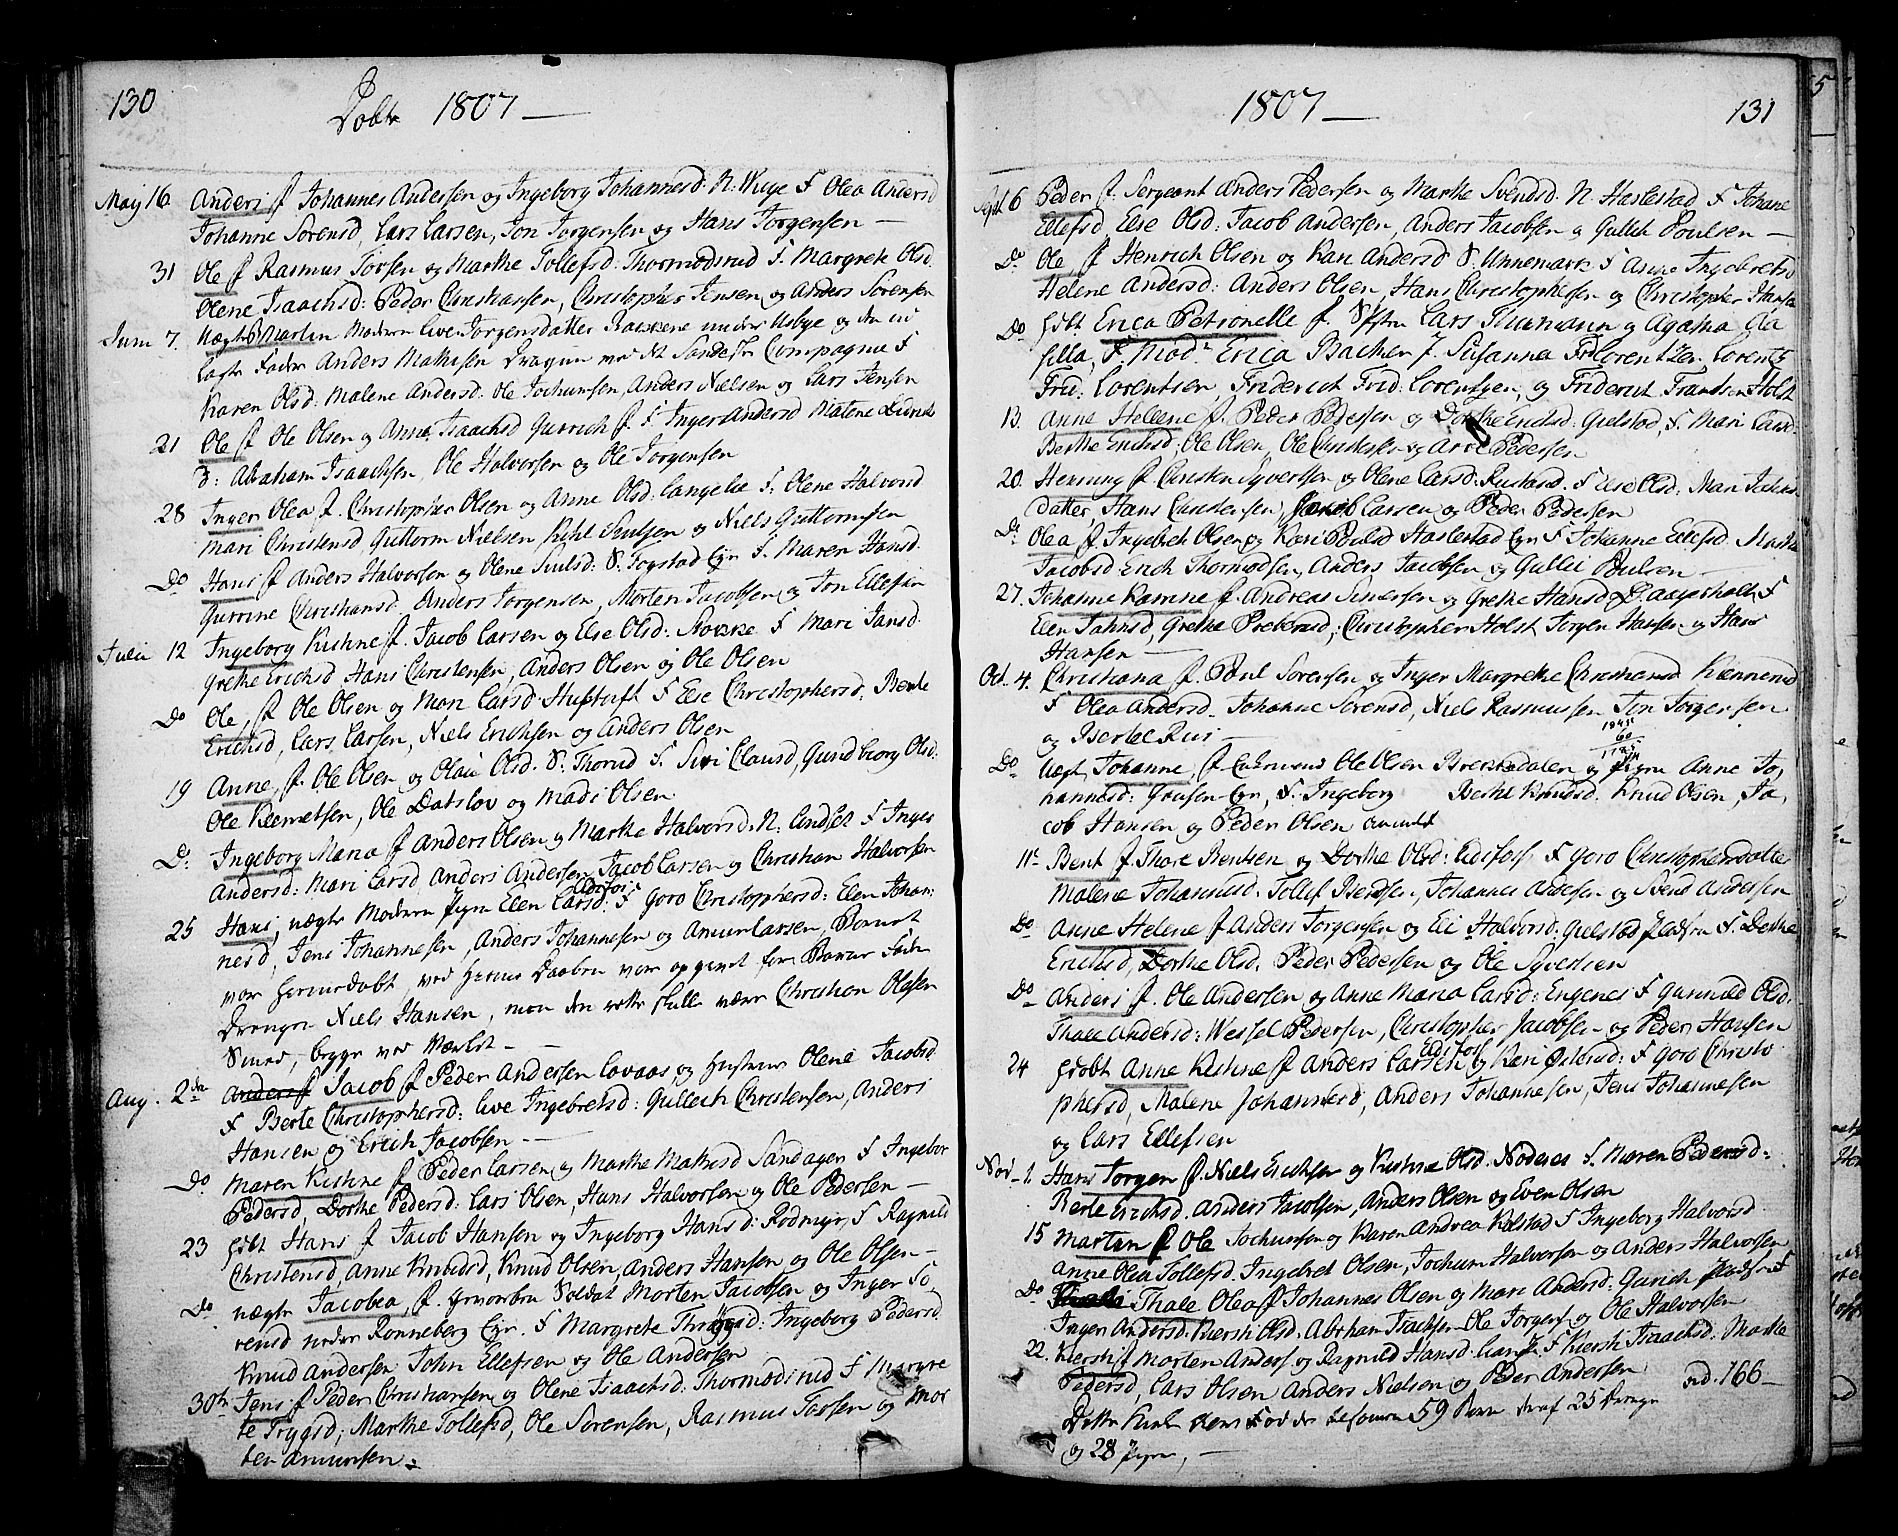 130
Døbte 1807 —
May 16 Anders f Johannes Andersen og Ingeborg Johannesd: N: Wiige F Olea Andersd
Johanne Sørensd, Lars Larsen, Jon Jørgensen og Hans Jørgensen —
31 Ole f Rasmus Torsen og Marthe Tollefsd: Thormodsrud F. Margrete Olsd.
Olene Isaachsd: Peder Christiansen, Christopher Jensen og Anders Sørensen
Juni 7. Uægte Martin Moderen Live Jørgensdatter under Usbye og den ud
lagte Fader Anders Mathisen Dragun ved det Compagnie F
Karen Olsd: Malene Andersd: Ole Jochumsen, Anders Nielsen og Lars Jensen
21 Ole f Ole Olsen og Anne Isaachsd Gurrich f F Inger Andersd Malene
d: Abraham Isaachsen, Ole Halvorsen og Ole Jørgensen
28 Inger Olea f. Christopher Olsen og Anne Olsd: Langelie F. Olene Halvorsd
Mari Christensd, Guttorm Nielsen og Niels Guttormsen
Do Hans f Anders Halvorsen og Olene S. Fogstad Eyn F. Maren Hansd.
Gurrine Christiansd. Anders Jørgensen, Morten Jacobsen og Jon Ellefsen
Julii 12 Ingeborg Kistine f. Jacob Larsen og Else Olsd: F Mari Jansd.
Grethe Erichsd Hans Christensen, Anders Olsen og Ole Olsen
Do Ole, f Ole Olsen og Mari Larsd: Hustuft F Else Christophersd, Berte
Erichsd, Lars Larsen, Niels Erichsen og Anders Olsen
19 Anne, f. Ole Olsen og Olau Olsd. S. Thorud F. Siri Clausd, Gundborg Olsd:
Ole Clemetsen, Ole Datslov og Mads Olsen
Do: Ingeborg Maria f Anders Olsen og Marthe Halvorsd. N: F Inger
Andersd: Mari Larsd Anders Andersen Jacob Larsen og Christian Halvorsen
Edsfos
25 Hans, uægte Moderen Pigen Elen Larsd: F Goro Christophersd: Elen Johan:
nesd, Jens Johannesen, Anders Johannesen og Amun Larsen, Barnet
var hjemmedøbt ved hvis Daaben var opgivet for Barne Fader
Drengen Niels Hansen, men den rette skulle være Christian Olesen
Smed, begge ved Værket —
Aug. 2den Anders f Jacob f Peder Andersen Lovaas og Hustrue Olene Jacobsd
F Berte Christophersd: Live Ingebretsd: Gullech Christensen, Anders
Hansen og Erich Jacobsen —
Do Maren Kistine f Peder Larsen og Marthe Mathisd Sandager F Ingebor
Pedersd, Dorthe Pedersd: Lars Olsen, Hans Halvorsen og Ole Pedersen —
23 Hans f Jacob Hansen og Ingeborg Hansd: Rodmyr, F Ragnild
Christensd, Anne Knudsd, Knud Olsen, Anders Hansen og Ole Olsen —
Do uægte Jacobea, f. Soldat Morten Jacobsen og Inger Sø
rensd under Ronneberg Eyn. F Margrete Ingeborg Pedersd
Knud Andersen John Ellefsen og Ole Andersen
30te Jens f Peder Christiansen og Olene Isaachsd: Thormodsrud F Margre
te Trygsd; Marthe Tollefsd, Ole Sørensen, Rasmus Torsen og Mor
ten Amunsen.
1807 —
131
Sept 6 Peder f. Sergeant Anders Pedersen og Marthe Svendsd. N. Haslestad F Johane
Ellefsd, Else Olsd: Jacob Andersen, Anders Jacobsen og Gullich Poulsen —
Do Ole, f Henrich Olsen og Kari Andersd S. Unnemark F Anne Ingebretsd
Helene Andersd: Anders Olsen, Hans Christophersen og Christopher Hanse
Do Erica Petronelle f. Lars Thumann og Agatha Au
silla, F. Mad: Erica Backer J. Susanna Frd: Lorentzen Lorentz
Frid: Lorentsen, Friderich Frid: Lorentzen, og Friderich Frantsen Holst
13. Anne Hellene f. Peder Pedersen og Dorthe Erichsd: Gulstad, F. Mari Larsd:
Berthe Erichsd, Ole Olsen, Ole Christensen og Arve Pedersen
20. Henning f Christen Syvertsen og Olene Larsd: Rustand. F Else Olsd: Mari Johns
datter, Hans Christensen, Jacob Larsen og Peder Pedersen
Do: Olea f Ingebret Olsen og Kari Poulsd Haslestad Eyn F Johanne Ellefsd. Marthe
Jacobsd Erich Thormodsen, Anders Jacobsen og Gullic Poulsen —
27. Johanne Karrine f. Andreas og Grethe Hansd F
Elen Johnsd, Grethe Prebensd: Christopher Holst Jørgen Hansen og Hans
Hansen —
Oct. 4. Christiana f. Poul Sørensen og Inger Margrethe Christiansd
F Olea Andersd. Johanne Sørensd, Niels Rasmussen Jon Jørgensen
og Bertel Riis —
60
Do Uægte Johanne, f Ole Olsen og Pigen Anne Jo,
hannesd: Eyn, F. Ingeborg Berthe Knudsd. Knud Olsen, Ja,
cob Hansen og Peder Olsen
11te Bent f Thore Bentsen og Dorthe Olsd: Edsfoss F Goro Christophersdatter
Malene Johannesd. Tollef Bentsen, Johannes og Svend Andersen
Do Anne Helene f Anders Jørgensen og Eli Halvorsd: Gulstad Pladsen F. Dorthe
Erichsd, Dorthe Olsd, Peder Pedersen og Ole Syversen
Do Anders f. Ole Andersen og Anne Maria Larsd: Engenes F Gunnild Olsd:
Thale Andersd: Wessel Pedersen, Christopher Jacobsen og Peder Hansen
Edsfos
24 Anne Kistine f Anders Larsen og Kari F Goro Christo
phersd, Malene Johannesd, Anders Johannesen, Jens Johannesen
og Lars Ellefsen
Nov. 1. Hans Jørgen f. Niels Erichsen og Kistine Olsd. Noderes F. Maren Pedersd:
Berte Erichsd. Anders Jacobsen, Anders Olsen og Even Olsen
15 Morten f Ole Jochumsen og Karen Andrea Kolstad F Ingeborg Halvorsd.
Anne Olea Tollefsd. Ingebret Olsen, Jochum Halvorsen og Anders Halvorsen
Do Thale Olea f Johannes Olsen og Mari Andersd: Gurich pladsen F
Inger Andersd. Olsd. Abraham Isachsen Ole Jørgens og Ole Halvorsen
22. Kiersti f Morten Anders. og Ragnild Hansd. F Kiersti Isaachsd: Marthe
Pedersd, Lars Olsen Anders Nielsen og Peder Andersen
Dette Kirke Aar Fød der tilsammen 59 Børn deraf 25 Drenge
og 28 Piger, —
166 —